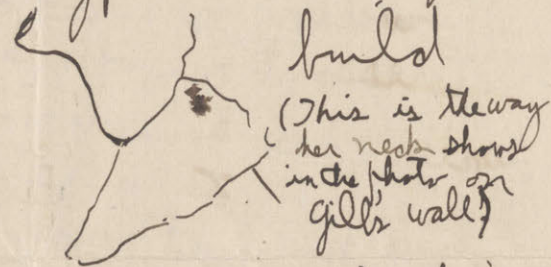 build
(This is the way
her neck shows
in the photo on
Gill's wall)